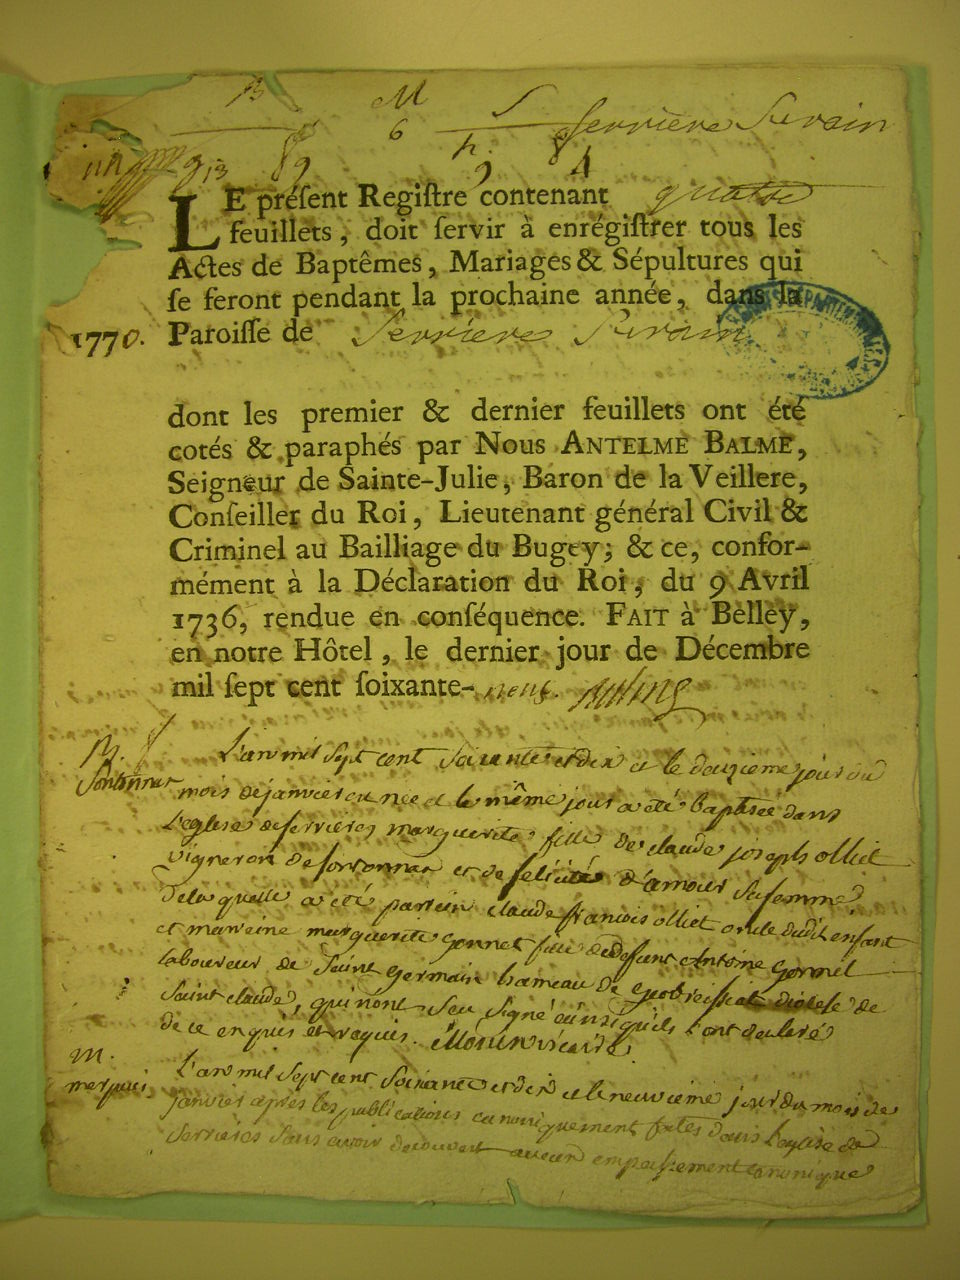 B M S Serrières Sirain
6
9 13 89 h. 9 84
LE préſent Regiſtre contenant quatre
feuillets, doit ſervir à enrégiſtrer tous les
Actes de Baptêmes, Mariages & Sépultures qui
ſe feront pendant la prochaine année, dans la
1770. Paroiſſe de Serrieres Sirain
dont les premier & dernier feuillets ont été
cotés & paraphés par Nous ANTELME BALME,
Seigneur de Sainte-Julie, Baron de la Veillere,
Conſeiller du Roi, Lieutenant général Civil &
Criminel au Bailliage du Bugey; & ce, confor-
mément à la Déclaration du Roi, du 9 Avril
1736, rendue en conſéquence. FAIT à Belley,
en notre Hôtel, le dernier jour de Décembre
mil ſept cent ſoixante-neuf.
B. L'an mil sept cent soixante et dix et le douzieme jour du
Sortonnar mois de janvier est née et le même jour a été baptisée dans
l'eglise de serrieres marguerite fille de claude joseph olliet
vigneron de sortonnar et de félicité d'amour sa femme
de laquelle a été parrein claude francois olliet oncle dudit enfant
et marreine marguerite gonnet fille de defunt Antoine gonnet
laboureur de saint germain hameau de diocese de
saint claude, qui n'ont seu signé ainsi qu'ils l'ont declaré
de ce enquis et requis. vicaire
M. L'an mil sept cent soixante et dix et le neuvieme jour du mois de
merpuis janvier après les publications canoniquement faites dans l'eglise de
serrieres sans avoir decouvert aucun empeschement canonique